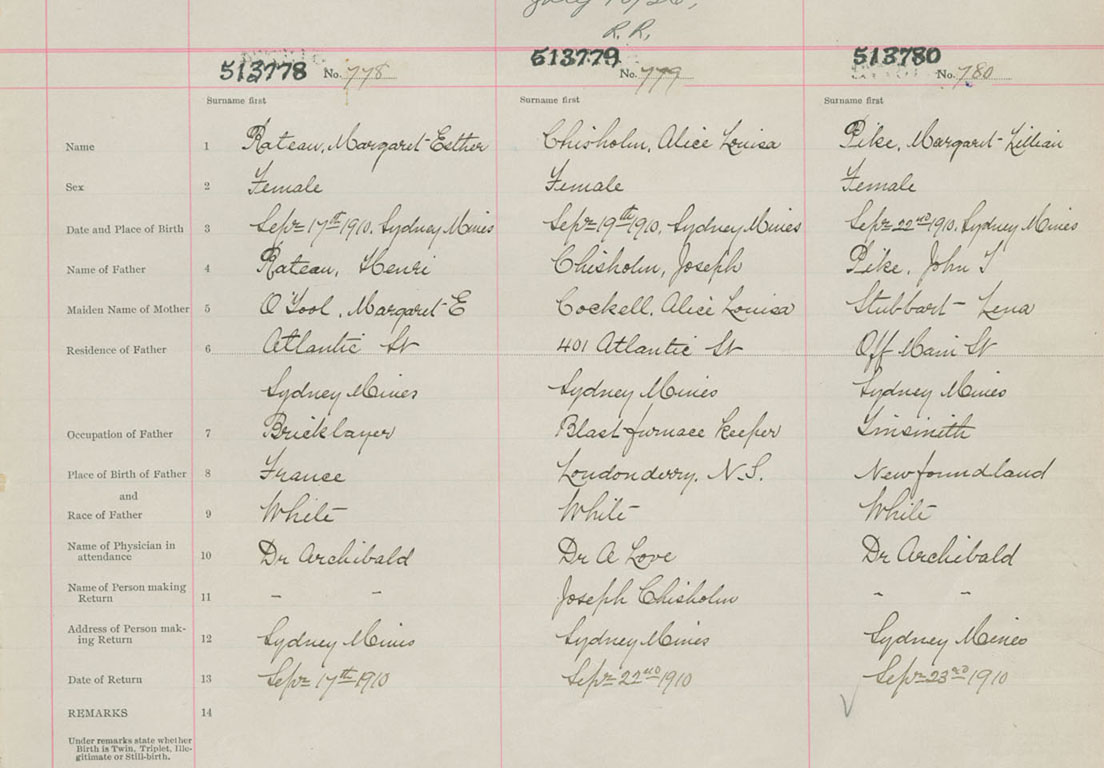 July 10/26,
R. R.
513778 No. 778
513779 No. 779
513780 No. 780
Surname first Surname first Surname first
Name 1 Rateau, Margaret-Esther Chisholm, Alice Louisa Pike, Margaret-Lillian
Sex 2 Female Female Female
Date and Place of Birth 3 Sepr 17th 1910, Sydney Mines Sepr 19th 1910, Sydney Mines Sepr 22nd 1910, Sydney Mines
Name of Father 4 Rateau, Henri Chisholm, Joseph Pike, John T
Maiden Name of Mother 5 O'Tool, Margaret-E Cockell, Alice Louisa Stubbart- Lena
Residence of Father 6 Atlantic St 401 Atlantic St Off Main St
Sydney Mines Sydney Mines Sydney Mines
Occupation of Father 7 Bricklayer Blast furnace keeper Tinsmith
Place of Birth of Father 8 France Londonderry, N.S. Newfoundland
and
Race of Father 9 White White White
Name of Physician in
attendance 10 Dr Archibald Dr A Love Dr Archibald
Name of Person making
Return 11 - - Joseph Chisholm - -
Address of Person mak-
ing Return 12 Sydney Mines Sydney Mines Sydney Mines
Date of Return 13 Sepr 17th 1910 Sepr 22nd 1910 Sepr 23rd 1910
REMARKS 14
Under remarks state whether
Birth is Twin, Triplet, Ille-
gitimate or Still-birth.